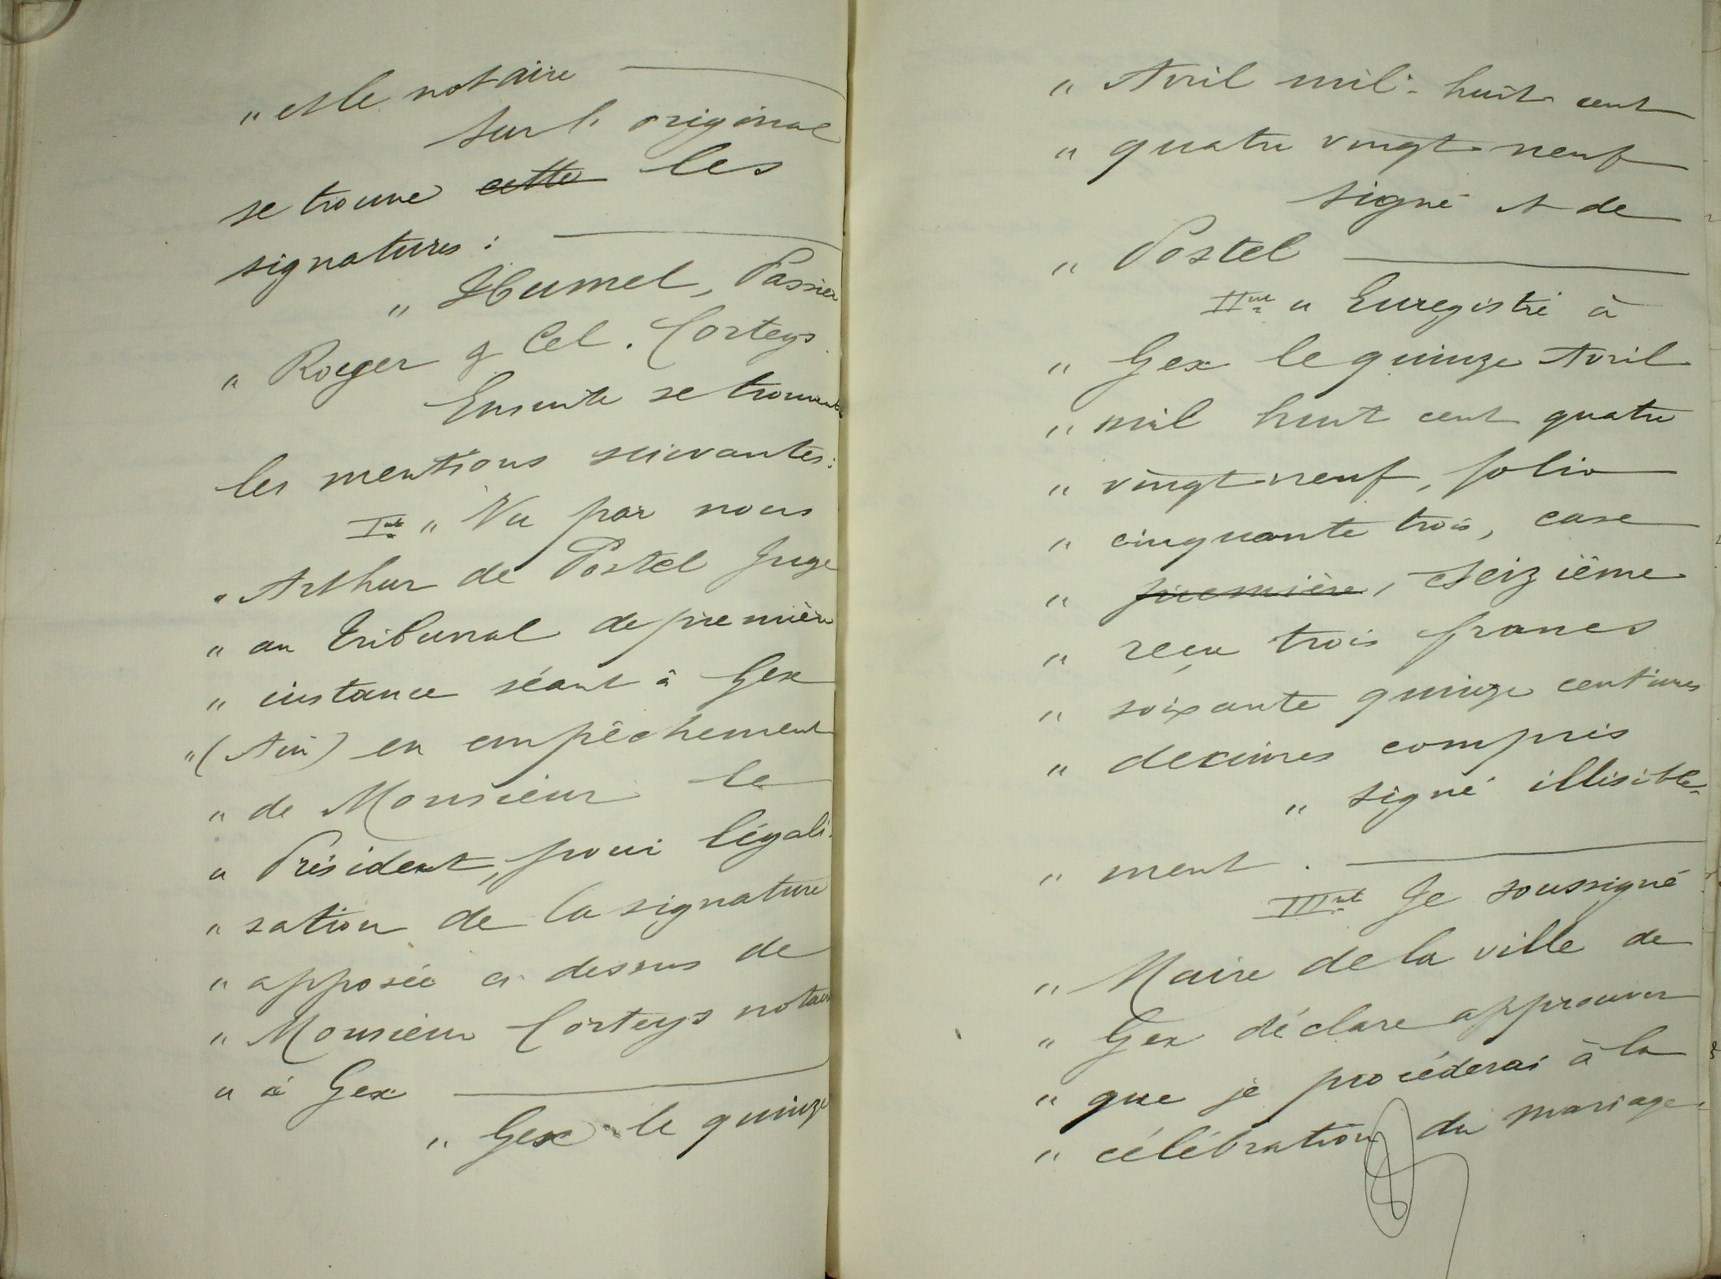 „ et le notaire
Sur l'original
se trouve cette les
signatures :
„ Humel, Passier
„ Roeger & Cel. Corteys.
Ensuite se trouvent
les mentions suivantes :
I° „ Vu par nous
„ Arthur de Postel Juge
„ au Tribunal de première
„ instance séant à Gex
„ (Ain) en empêchement
„ de Monsieur le
„ Président, pour légali-
„ sation de la signature
„ apposée ci dessus de
„ Monsieur Corteys notaire
„ à Gex
„ Gex le quinze
„ Avril mil-huit cent
„ quatre vingt neuf
signé A de
„ Postel
II° „ Enregistré à
„ Gex le quinze Avril
„ mil huit cent quatre
„ vingt neuf, folio
„ cinquante trois, case
„ première, seizième
„ reçu trois francs
„ soixante quinze centimes
„ decimes compris
„ signé illisible-
„ ment.
III° Je soussigné
„ Maire de la ville de
„ Gex déclare approuver
„ que je procéderai à la
„ célébration du mariage